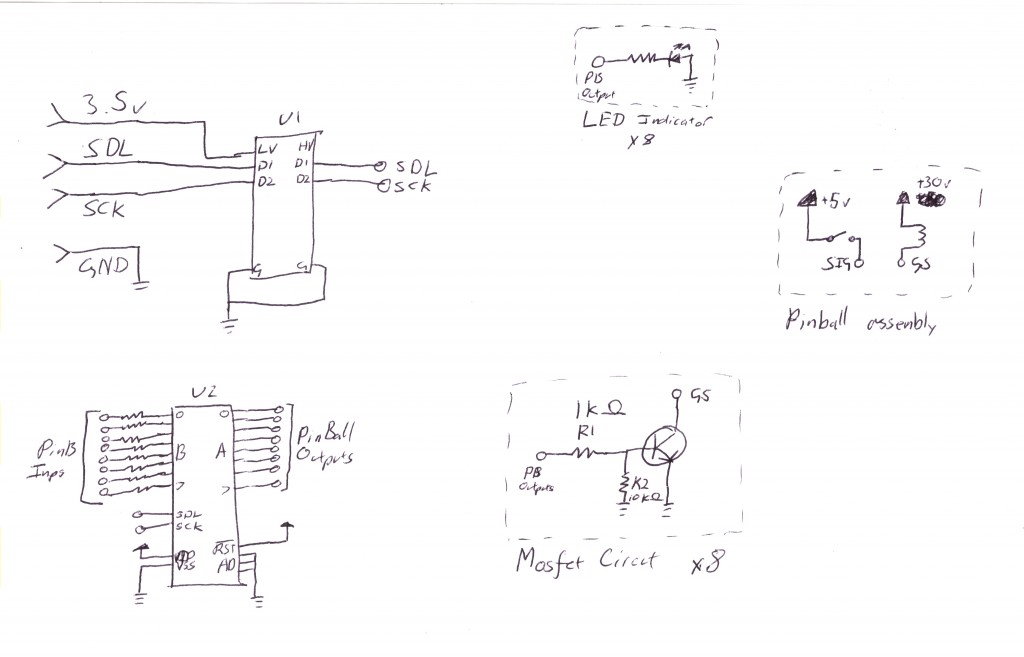 3.5v
SDL
SCK
GND
U1
LV HV
D1 D1
D2 D2
G G
SDL
SCK
PB
Output
LED Indicator
x8
+5v
+30v
SIG
GS
Pinball assembly
U2
0 0
B A
7 7
PinB
Inps
PinBall
Outputs
SDL
SCK
RST
VSS
AD
1KΩ
R1
GS
PB
Outputs
R2
10KΩ
Mosfet Circut x8